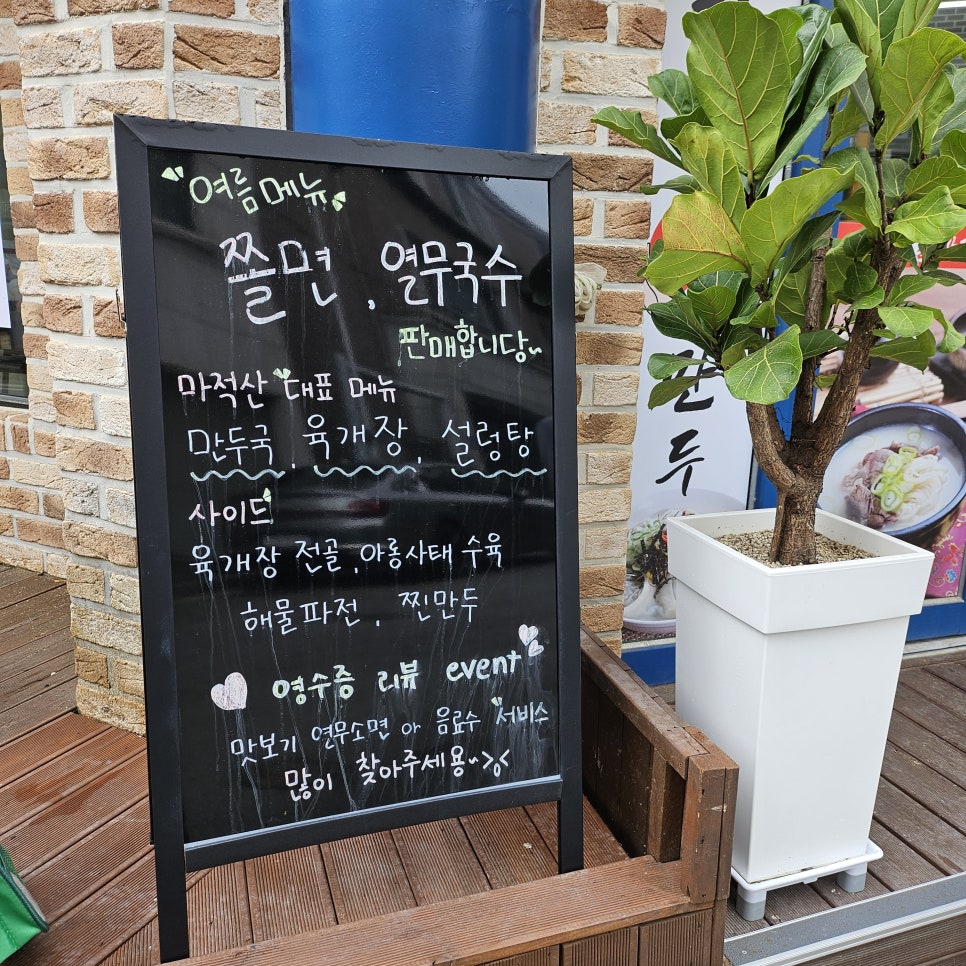 여름메뉴
쫄면, 열무국수
판매합니당~
마적산 대표 메뉴
만두국, 육개장, 설렁탕
사이드
육개장 전골, 아롱사태 수육
해물파전, 찐만두
영수증 리뷰 event
맛보기 열무소면 or 음료수 서비스
많이 찾아주세용~><
만두